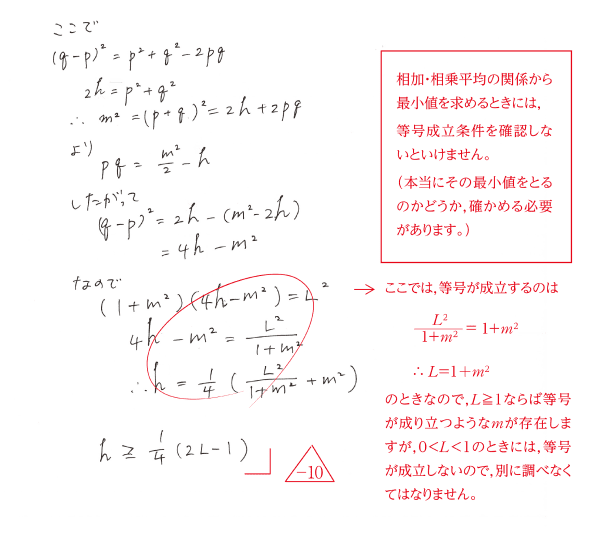 ここで
(q-p)² = p² + q² - 2pq
2h = p² + q²
∴ m² = (p+q)² = 2h + 2pq
より
pq = m²/2 - h
したがって
(q-p)² = 2h - (m² - 2h)
= 4h - m²
なので
(1+m²)(4h-m²) = L²
4h - m² = L²/(1+m²)
∴ h = 1/4 ( L²/(1+m²) + m² )
h ≧ 1/4 (2L-1)
-10
相加・相乗平均の関係から
最小値を求めるときには,
等号成立条件を確認しな
いといけません。
(本当にその最小値をとる
のかどうか,確かめる必要
があります。)
→ ここでは,等号が成立するのは
L²/(1+m²) = 1+m²
∴ L=1+m²
のときなので,L≧1ならば等号
が成り立つようなmが存在しま
すが,0<L<1のときには,等号
が成立しないので,別に調べなく
てはなりません。